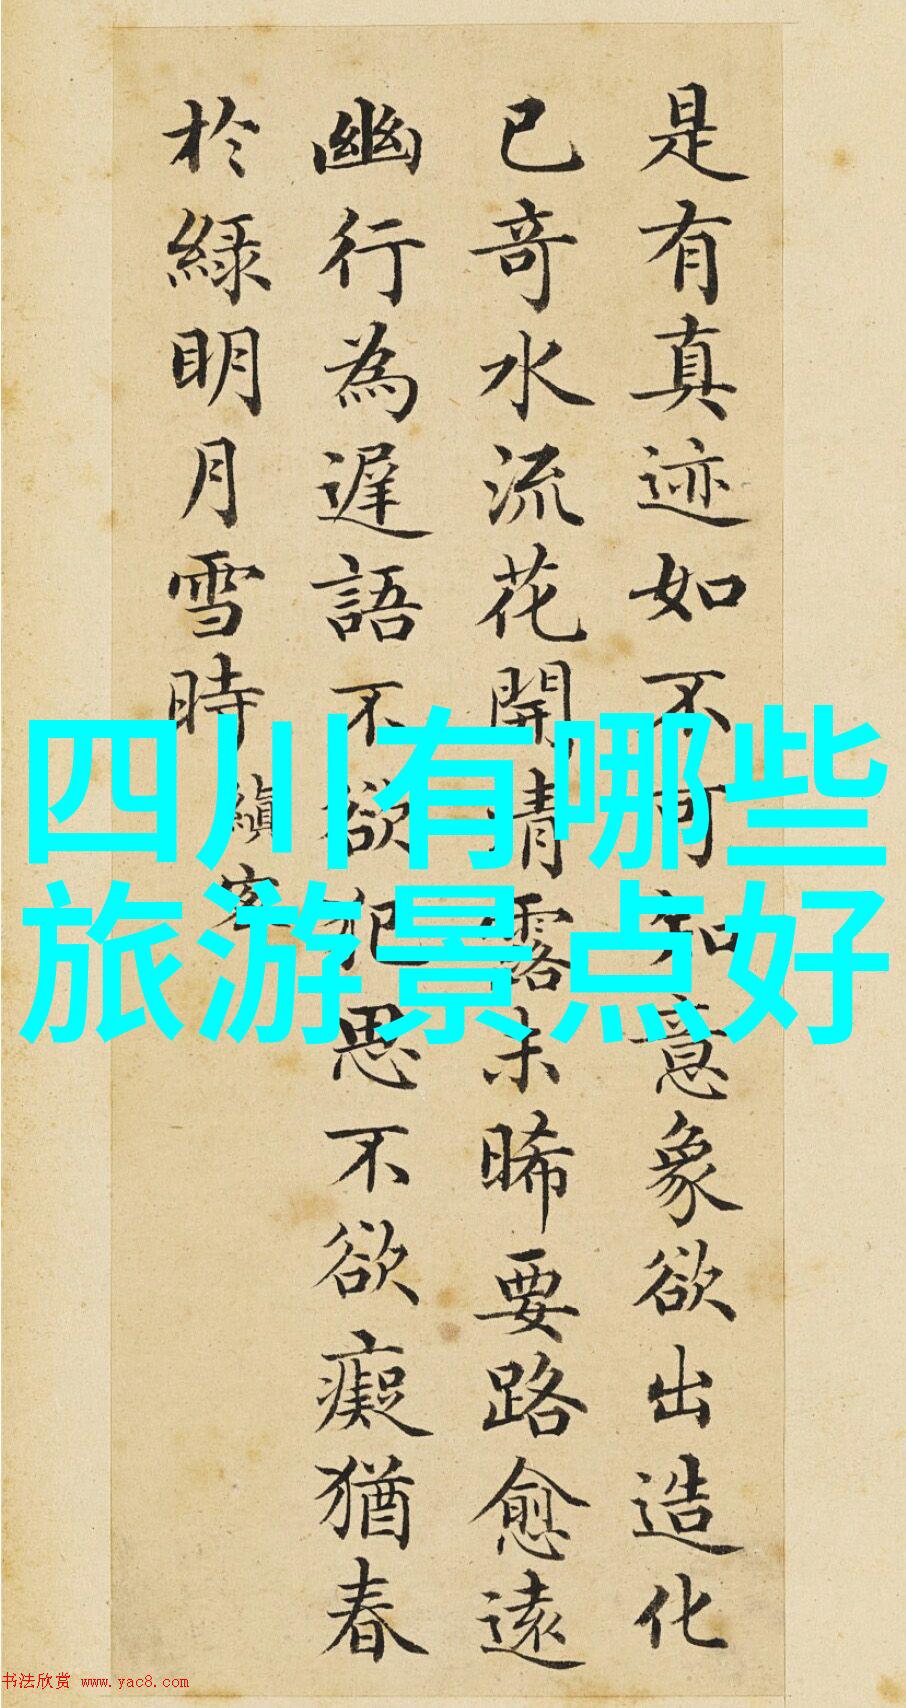 是有真迹如不可知意象欲出造化
已奇水流花開清露未晞要路愈遠
幽行為遲語不欲犯思不欲癡猶春
於綠明月雪時
縝
四川有哪些
旅游景点好
书法欣赏 www.yac8.com